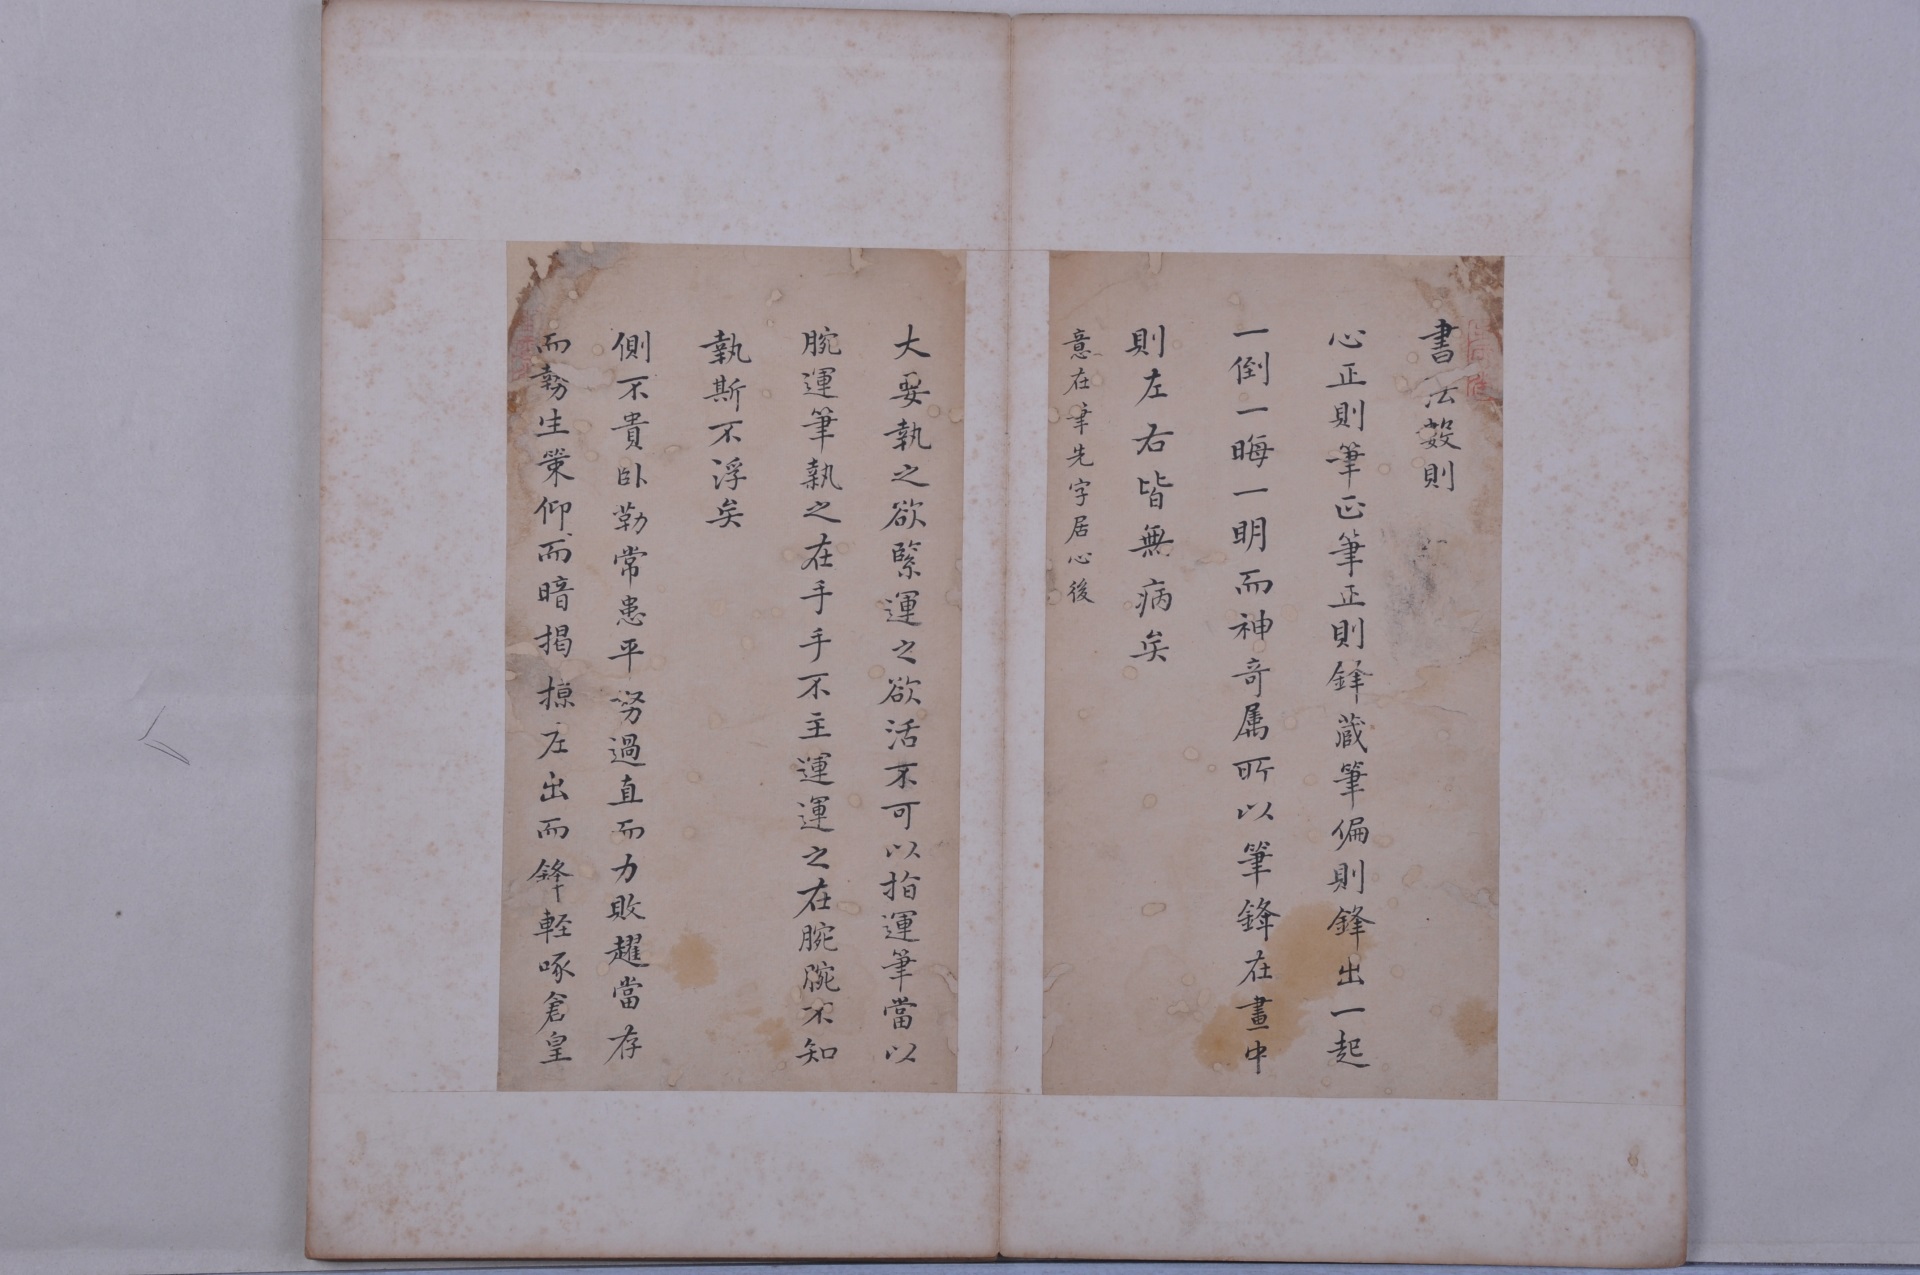 書法數則
心正則筆正筆正則鋒藏筆偏則鋒出一起
一倒一晦一明而神奇属所以筆鋒在畫中
則左右皆無病矣
意在筆先字居心後
大要執之欲緊運之欲活不可以指運筆當以
腕運筆執之在手手不主運運之在腕腕不知
執斯不浮矣
側不貴卧勒常患平努過直而力敗趯當存
而勢生策仰而暗揭掠左出而鋒輕啄倉皇